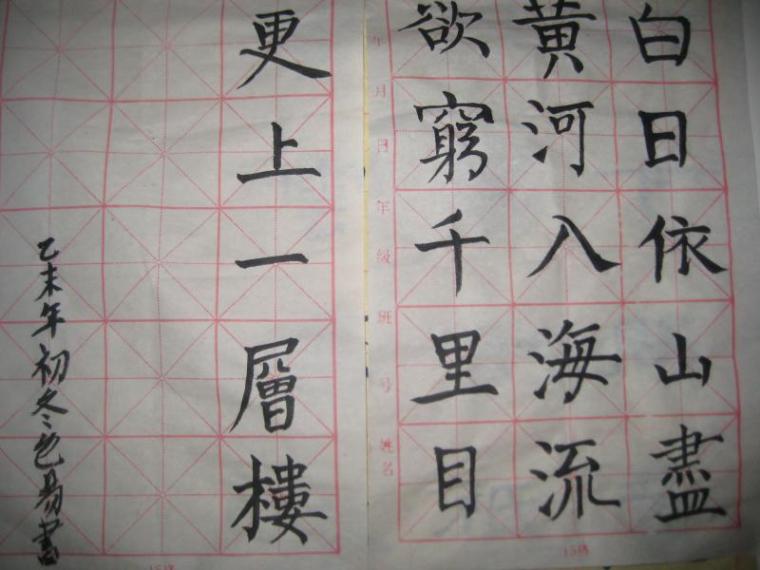 白日依山盡
黃河八海流
欲窮千里目
更上一層樓
乙未年初冬色易書
年月日年級班号姓名
15格
15格